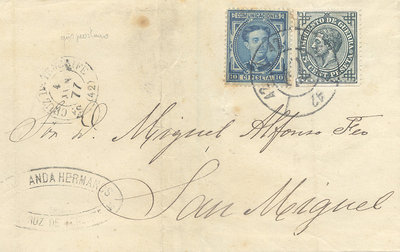 COMUNICACIONES
10 Cs PESETA 10
IMPUESTO DE GUERRA
5 CENT PESETA
77
(42)
42
42
Sor D. Miguel Alfonso Feo
ANDA HERMANOS
CRUZ DE
San Miguel